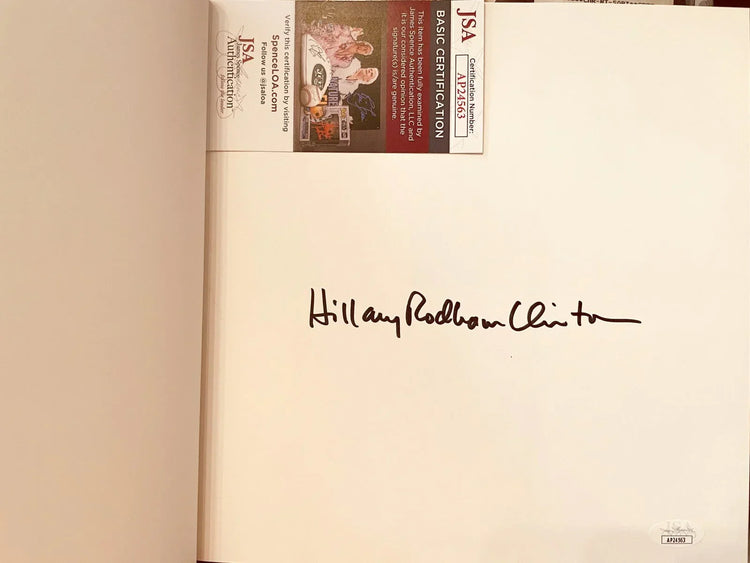 JSA
Certification Number:
AP24563
BASIC CERTIFICATION
This item has been fully examined by
James Spence Authentication, LLC and
it is our considered opinion that the
signature(s) is/are genuine.
Verify this certification by visiting
SpenceLOA.com
Follow us @jsaloa
JSA
Authentication
Hillary Rodham Clinton
JSA
AP24563